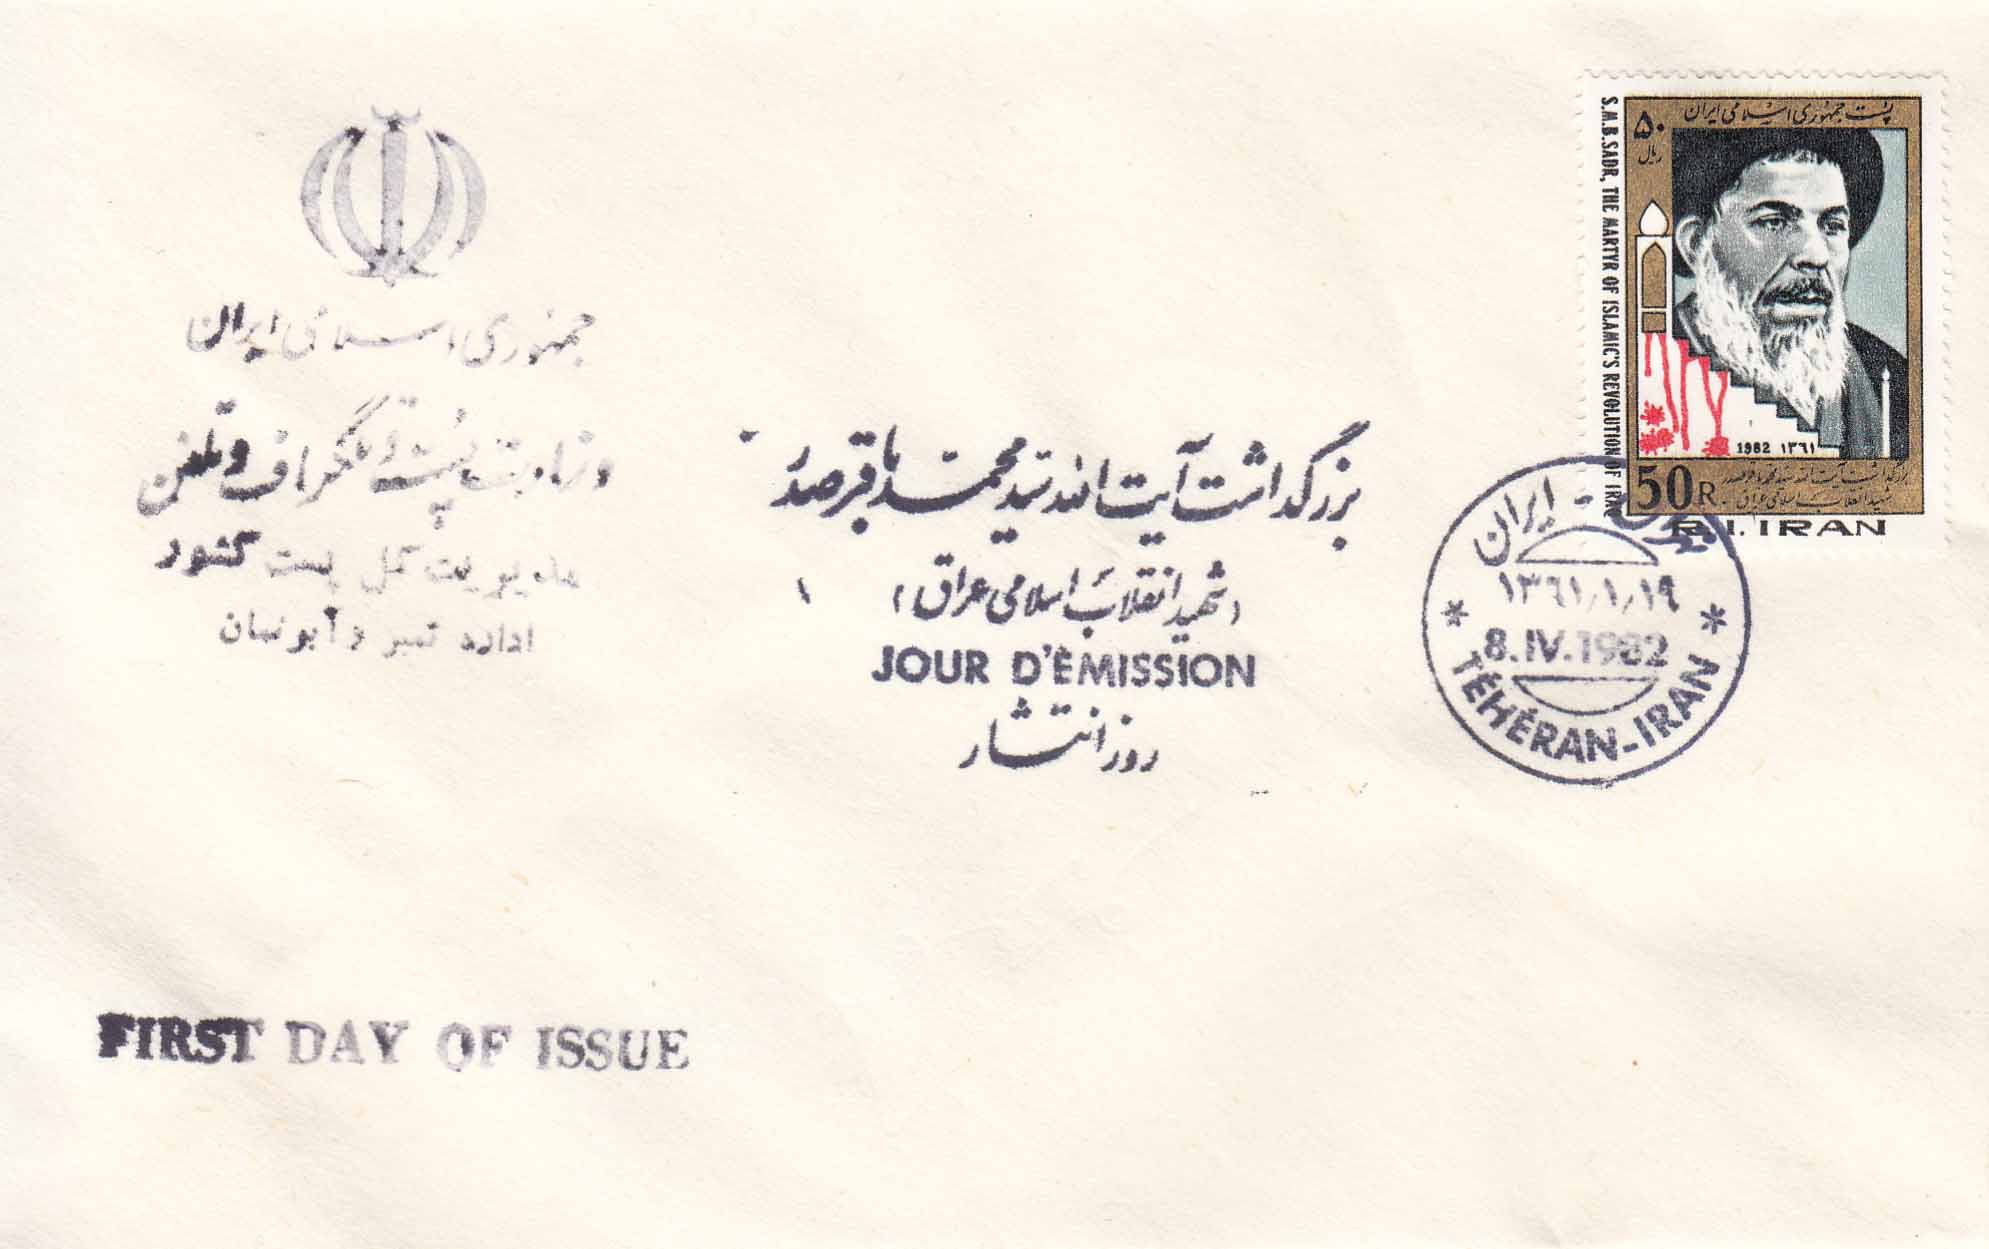 جمهوری اسلامی ایران
وزارت پست و تلگراف و تلفن
مدیریت کل پست کشور
اداره تمبر و آبونمان
بزرگداشت آیت الله سید محمد باقر صدر
(شهید انقلاب اسلامی عراق)
JOUR D'ÉMISSION
روز انتشار
FIRST DAY OF ISSUE
پست جمهوری اسلامی ایران
۵۰
ریال
S.M.B.SADR, THE MARTYR OF ISLAMIC'S REVOLUTION OF IRAQ
1982 ۱۳۶۱
بزرگداشت آیت الله سید محمد باقر صدر
شهید انقلاب اسلامی عراق
50R
R.I.IRAN
تهران - ایران
۱۳۶۱/۱/۱۹
8.IV.1982
TÉHÉRAN-IRAN